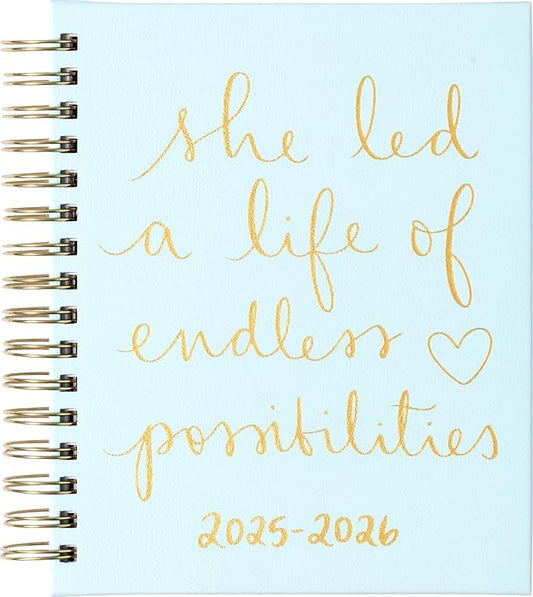 she led
a life of
endless
possibilities
2025-2026